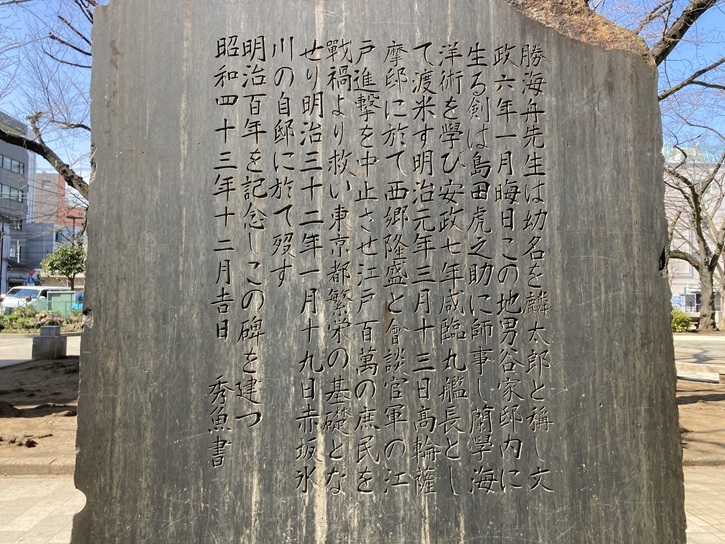 勝海舟先生は幼名を麟太郎と稱し文
政六年一月晦日この地男谷家邸内に
生る剣は島田虎之助に師事し蘭學海
洋術を學び安政七年咸臨丸艦長とし
て渡米す明治元年三月十三日高輪薩
摩邸に於て西郷隆盛と會談官軍の江
戸進撃を中止させ江戸百萬の庶民を
戰禍より救い東京都繁栄の基礎とな
せり明治三十二年一月十九日赤坂氷
川の自邸に於て歿す
明治百年を記念しこの碑を建つ
昭和四十三年十二月吉日　秀魚書